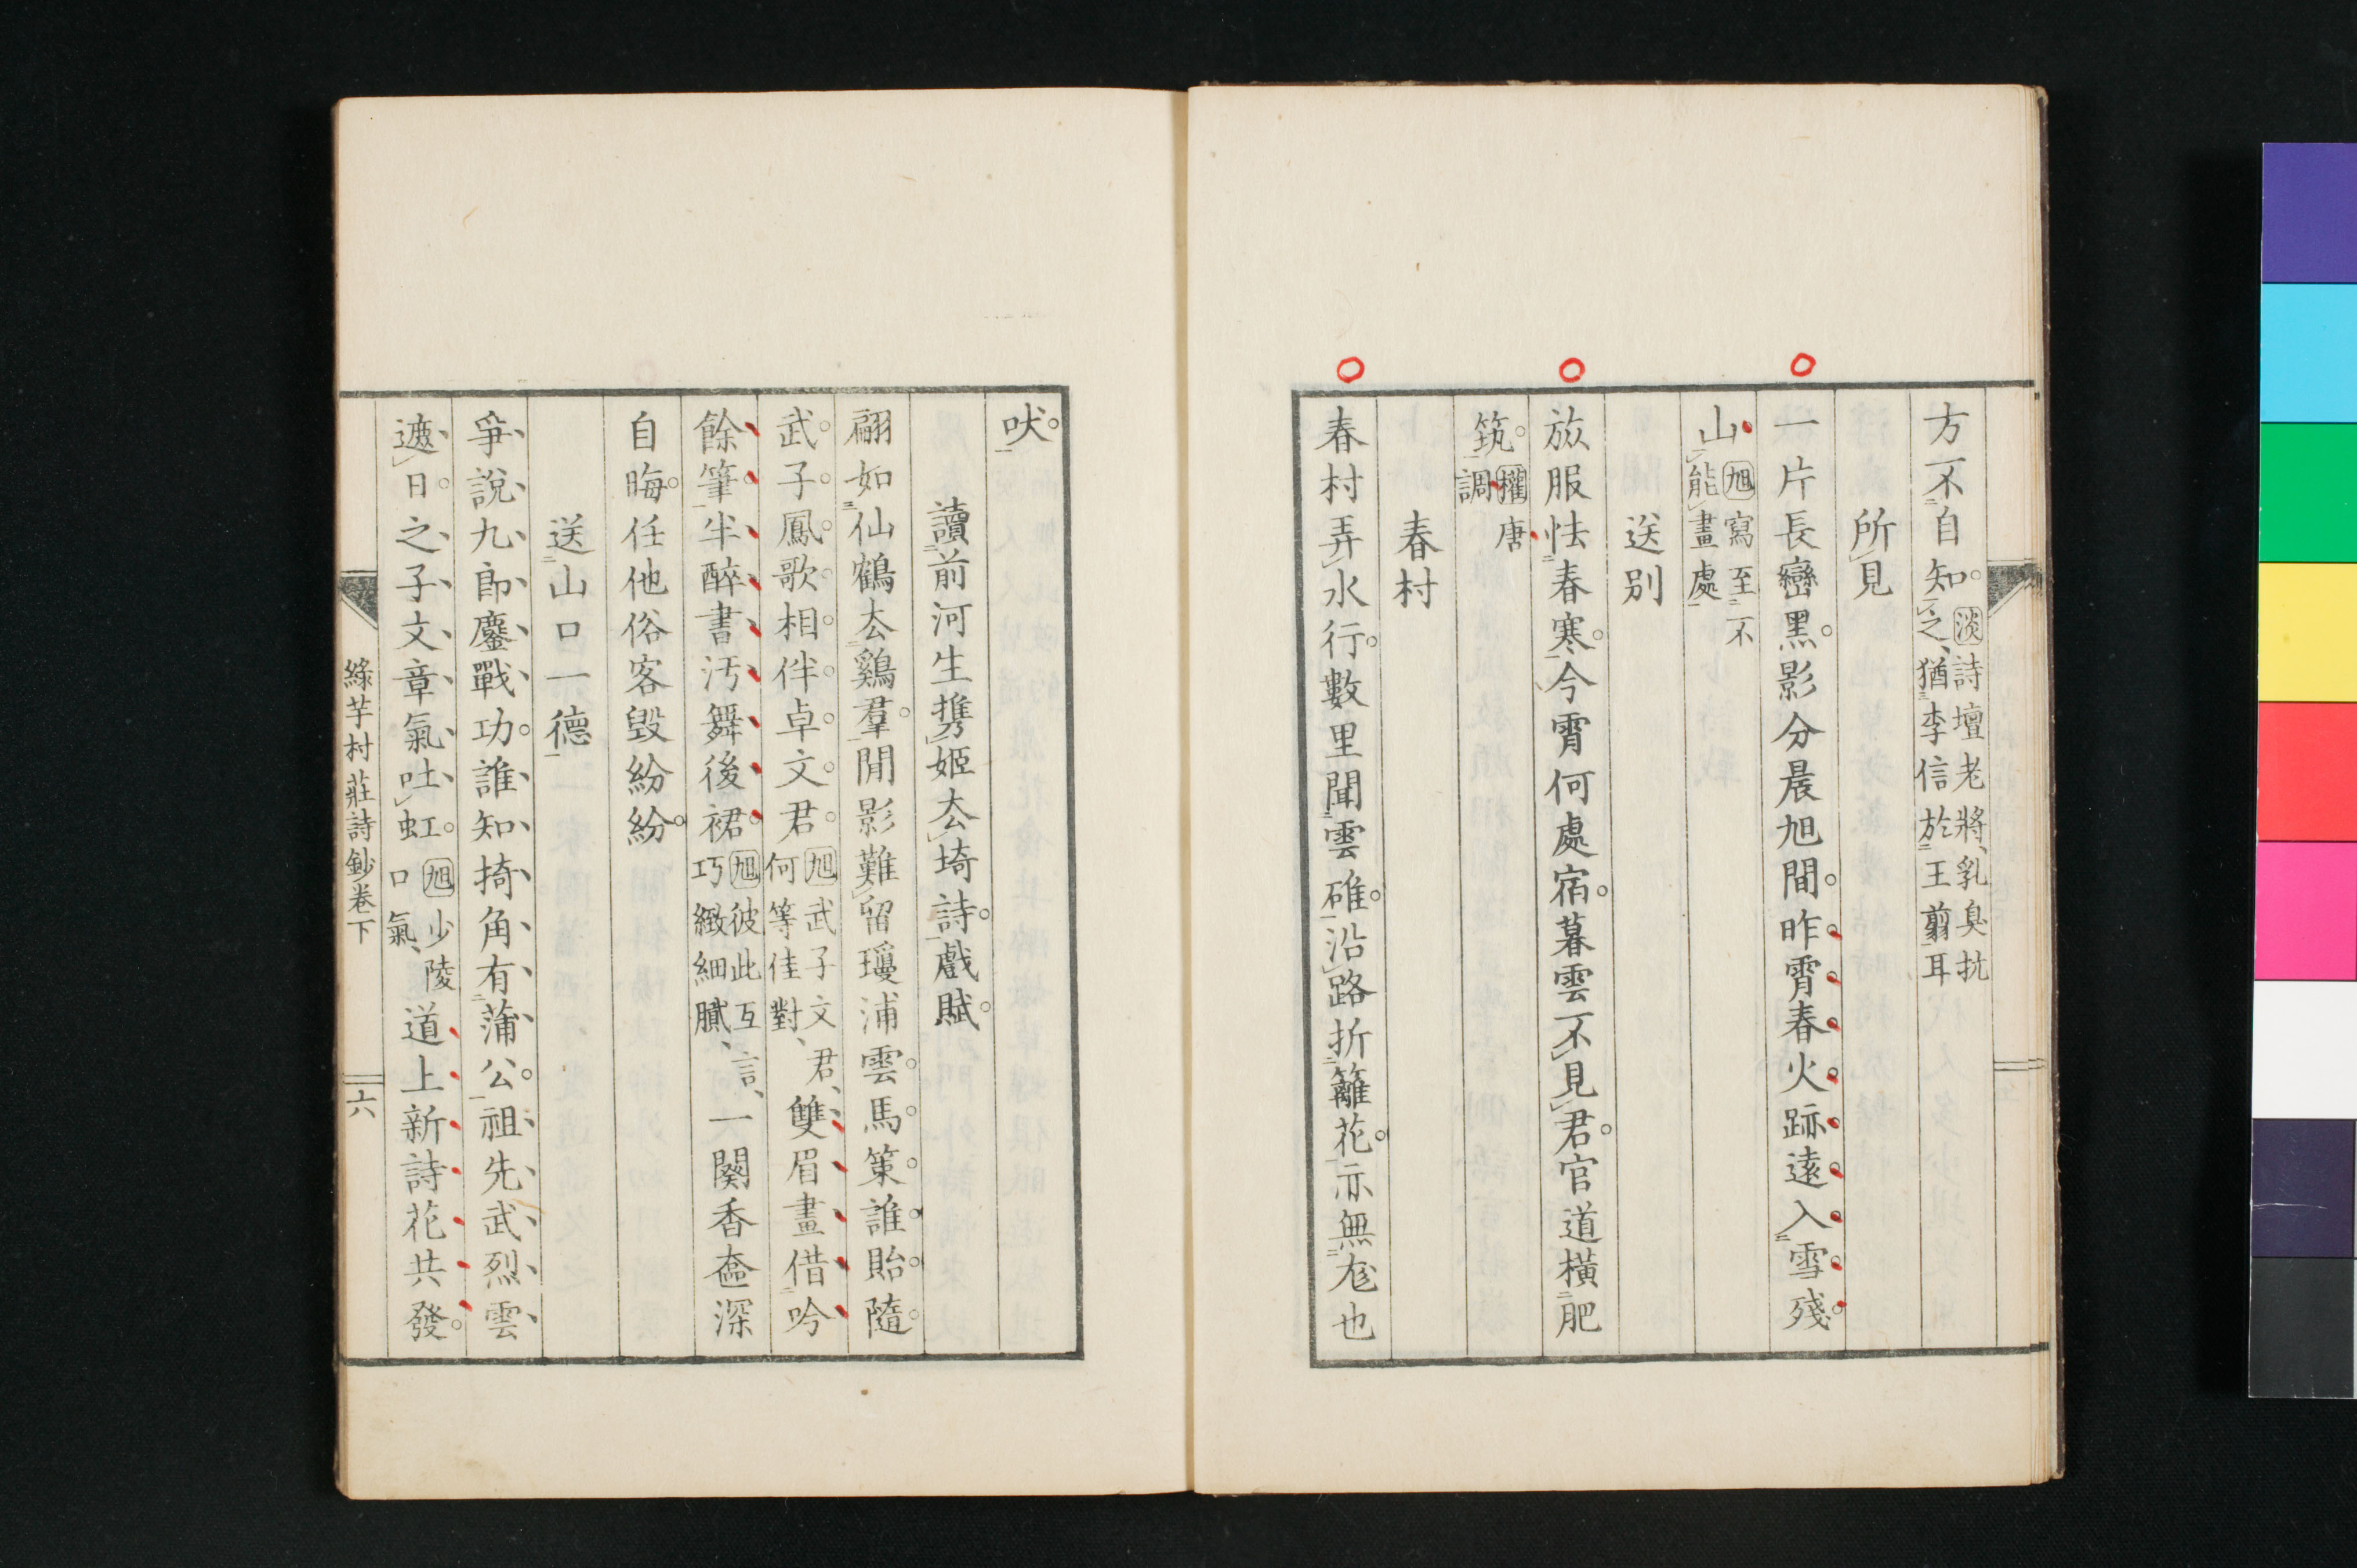 方不自知。淡詩壇老將、乳臭抗之、猶李信於王翦耳
所見
一片長巒黑。影分晨旭間。昨霄春火跡遠入雪殘。
山旭寫至不能畫處
送別
放服怯春寒。今霄何處宿。暮雲不見君。官道橫肥
筑。櫂唐調
春村
春村弄水行。數里聞雲碓。沿路折籬花。示無尨也
吠。
讀前河生携姬去埼詩。戲賦。
翩如仙鶴去鷄羣。閒影難留瓊浦雲。馬策誰貽隨
武子鳳歌相伴卓文君。旭武子文君、何等佳對、雙眉畫借吟
餘筆半醉書汚舞後裙。旭彼此互言、巧緻細膩、一闋香奩深
自晦。任他俗客毀紛紛。
送山口一德
爭說九郎鏖戰功。誰知掎角有蒲公。祖先武烈雲
遮日。之子文章氣吐虹。旭少陵口氣、道上新詩花共發。
綠芋村莊詩鈔卷下
六